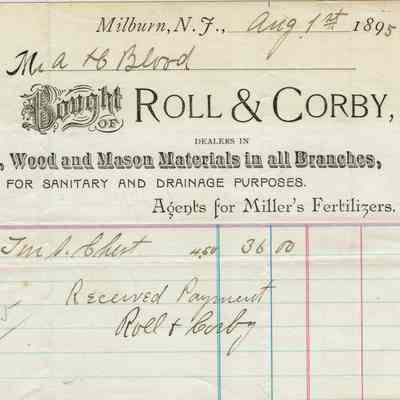 Milburn, N. J., Aug 1st 1895
M. A H Blood
Bought OF ROLL & CORBY,
DEALERS IN
, Wood and Mason Materials in all Branches,
FOR SANITARY AND DRAINAGE PURPOSES.
Agents for Miller's Fertilizers.
Chest 4.50 36 00
Received Payment
Roll & Corby